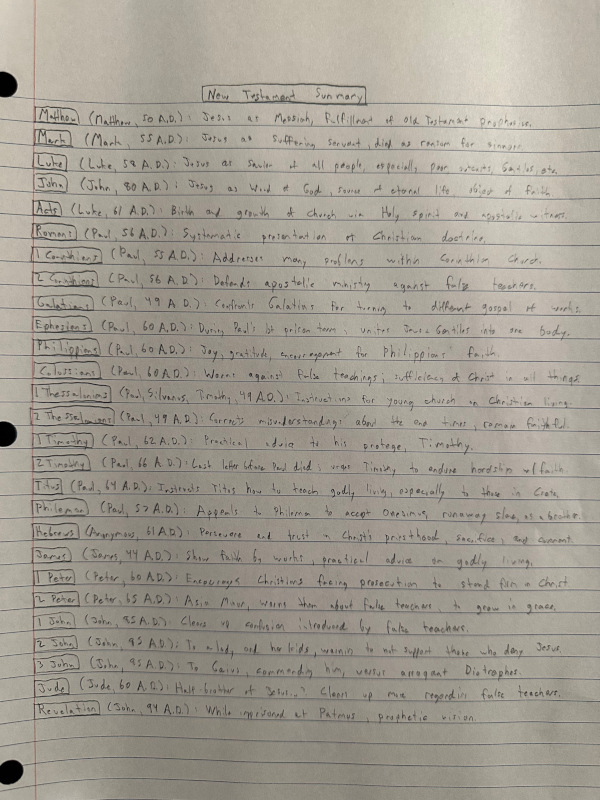 New Testament Summary
Matthew (Matthew, 50 A.D.): Jesus as Messiah, fulfillment of Old Testament prophecies.
Mark (Mark, 55 A.D.): Jesus as suffering servant, died as ransom for sinners.
Luke (Luke, 58 A.D.): Jesus as Savior of all people, especially poor, outcasts, Gentiles, etc.
John (John, 80 A.D.): Jesus as Word of God, source of eternal life, object of faith
Acts (Luke, 61 A.D.): Birth and growth of Church via Holy Spirit and apostolic witness.
Romans (Paul, 56 A.D.): Systematic presentation of Christian doctrine.
1 Corinthians (Paul, 55 A.D.): Addresses many problems within Corinthian Church.
2 Corinthians (Paul, 56 A.D.): Defends apostolic ministry against false teachers.
Galatians (Paul, 49 A.D.): Confronts Galatians for turning to different gospel of works.
Ephesians (Paul, 60 A.D.): During Paul's 1st prison term; unites Jews & Gentiles into one body.
Philippians (Paul, 60 A.D.): Joy, gratitude, encouragement for Philippians' faith.
Colossians (Paul, 60 A.D.): Warns against false teachings; sufficiency of Christ in all things.
1 Thessalonians (Paul, Silvanus, Timothy, 49 A.D.): Instructions for young church on Christian living.
2 Thessalonians (Paul, 49 A.D.): Corrects misunderstandings about the end times, remain faithful.
1 Timothy (Paul, 62 A.D.): Practical advice to his protege, Timothy.
2 Timothy (Paul, 66 A.D.): Last letter before Paul died; urges Timothy to endure hardship w/ faith.
Titus (Paul, 64 A.D.): Instructs Titus how to teach godly living, especially to those in Crete.
Philemon (Paul, 57 A.D.): Appeals to Philemon to accept Onesimus, runaway slave, as a brother.
Hebrews (Anonymous, 61 A.D.): Persevere and trust in Christ's priesthood, sacrifice, and covenant.
James (James, 44 A.D.): Show faith by works, practical advice on godly living.
1 Peter (Peter, 60 A.D.): Encourages Christians facing prosecution to stand firm in Christ.
2 Peter (Peter, 65 A.D.): Asia Minor, warns them about false teachers, to grow in grace.
1 John (John, 85 A.D.): Clears up confusion introduced by false teachers.
2 John (John, 85 A.D.): To a lady and her kids, warnin to not support those who deny Jesus.
3 John (John, 85 A.D.): To Gaius, commending him, versus arrogant Diotrephes.
Jude (Jude, 60 A.D.): Half-brother of Jesus Clears up more regarding false teachers.
Revelation (John, 94 A.D.): While imprisoned at Patmos, prophetic vision.